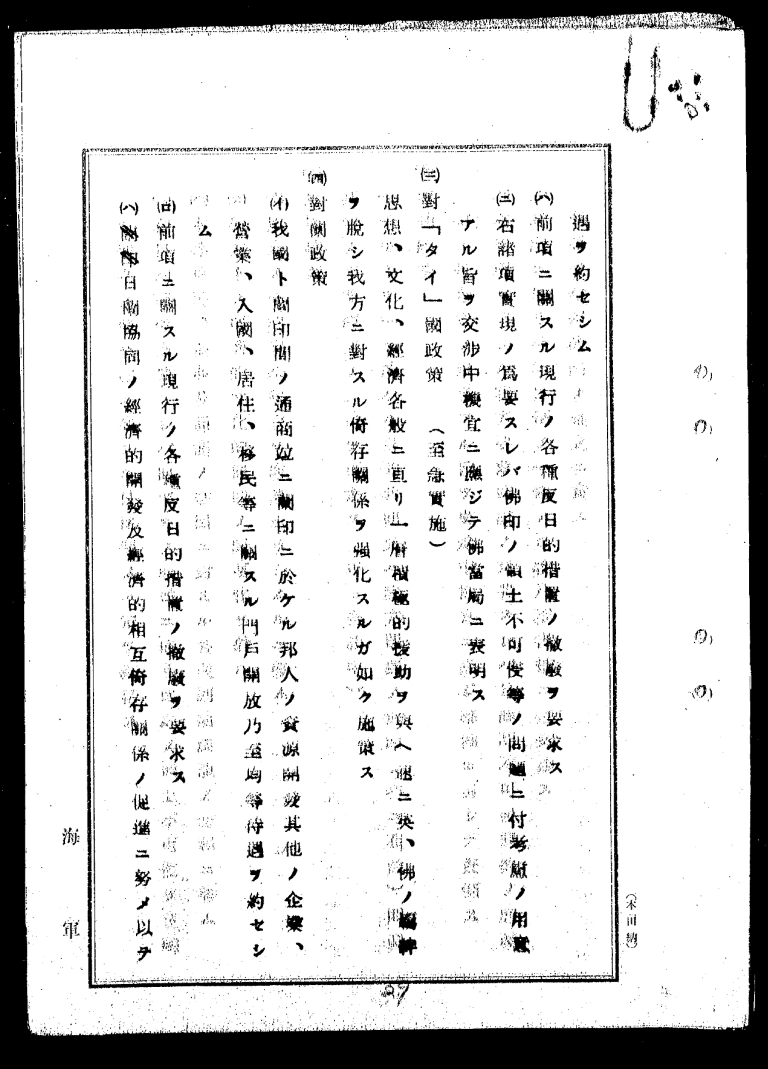 遇ヲ約セシム
(ハ)前項ニ關スル現行ノ各種反日的措置ノ撤廢ヲ要求ス
(ニ)右諸項實現ノ爲要スレバ佛印ノ領土不可侵等ノ問題ニ付考慮ノ用意
アル旨ヲ交渉中機宜ニ應ジテ佛當局ニ表明ス
(三)對「タイ」國政策 (至急實施)
思想、文化、經濟各般ニ亘リ一層積極的援助ヲ與ヘ速ニ英、佛ノ羈絆
ヲ脱シ我方ニ對スル倚存關係ヲ強化スルガ如ク施策ス
(四)對蘭政策
(イ)我國ト蘭印間ノ通商竝ニ蘭印ニ於ケル邦人ノ資源開發其他ノ企業、
營業、入國、居住、移民等ニ關スル門戸開放乃至均等待遇ヲ約セシ
ム
(ロ)前項ニ關スル現行ノ各種反日的措置ノ撤廢ヲ要求ス
(ハ)日蘭協同ノ經濟的開發及經濟的相互倚存關係ノ促進ニ努メ以テ
海軍
29